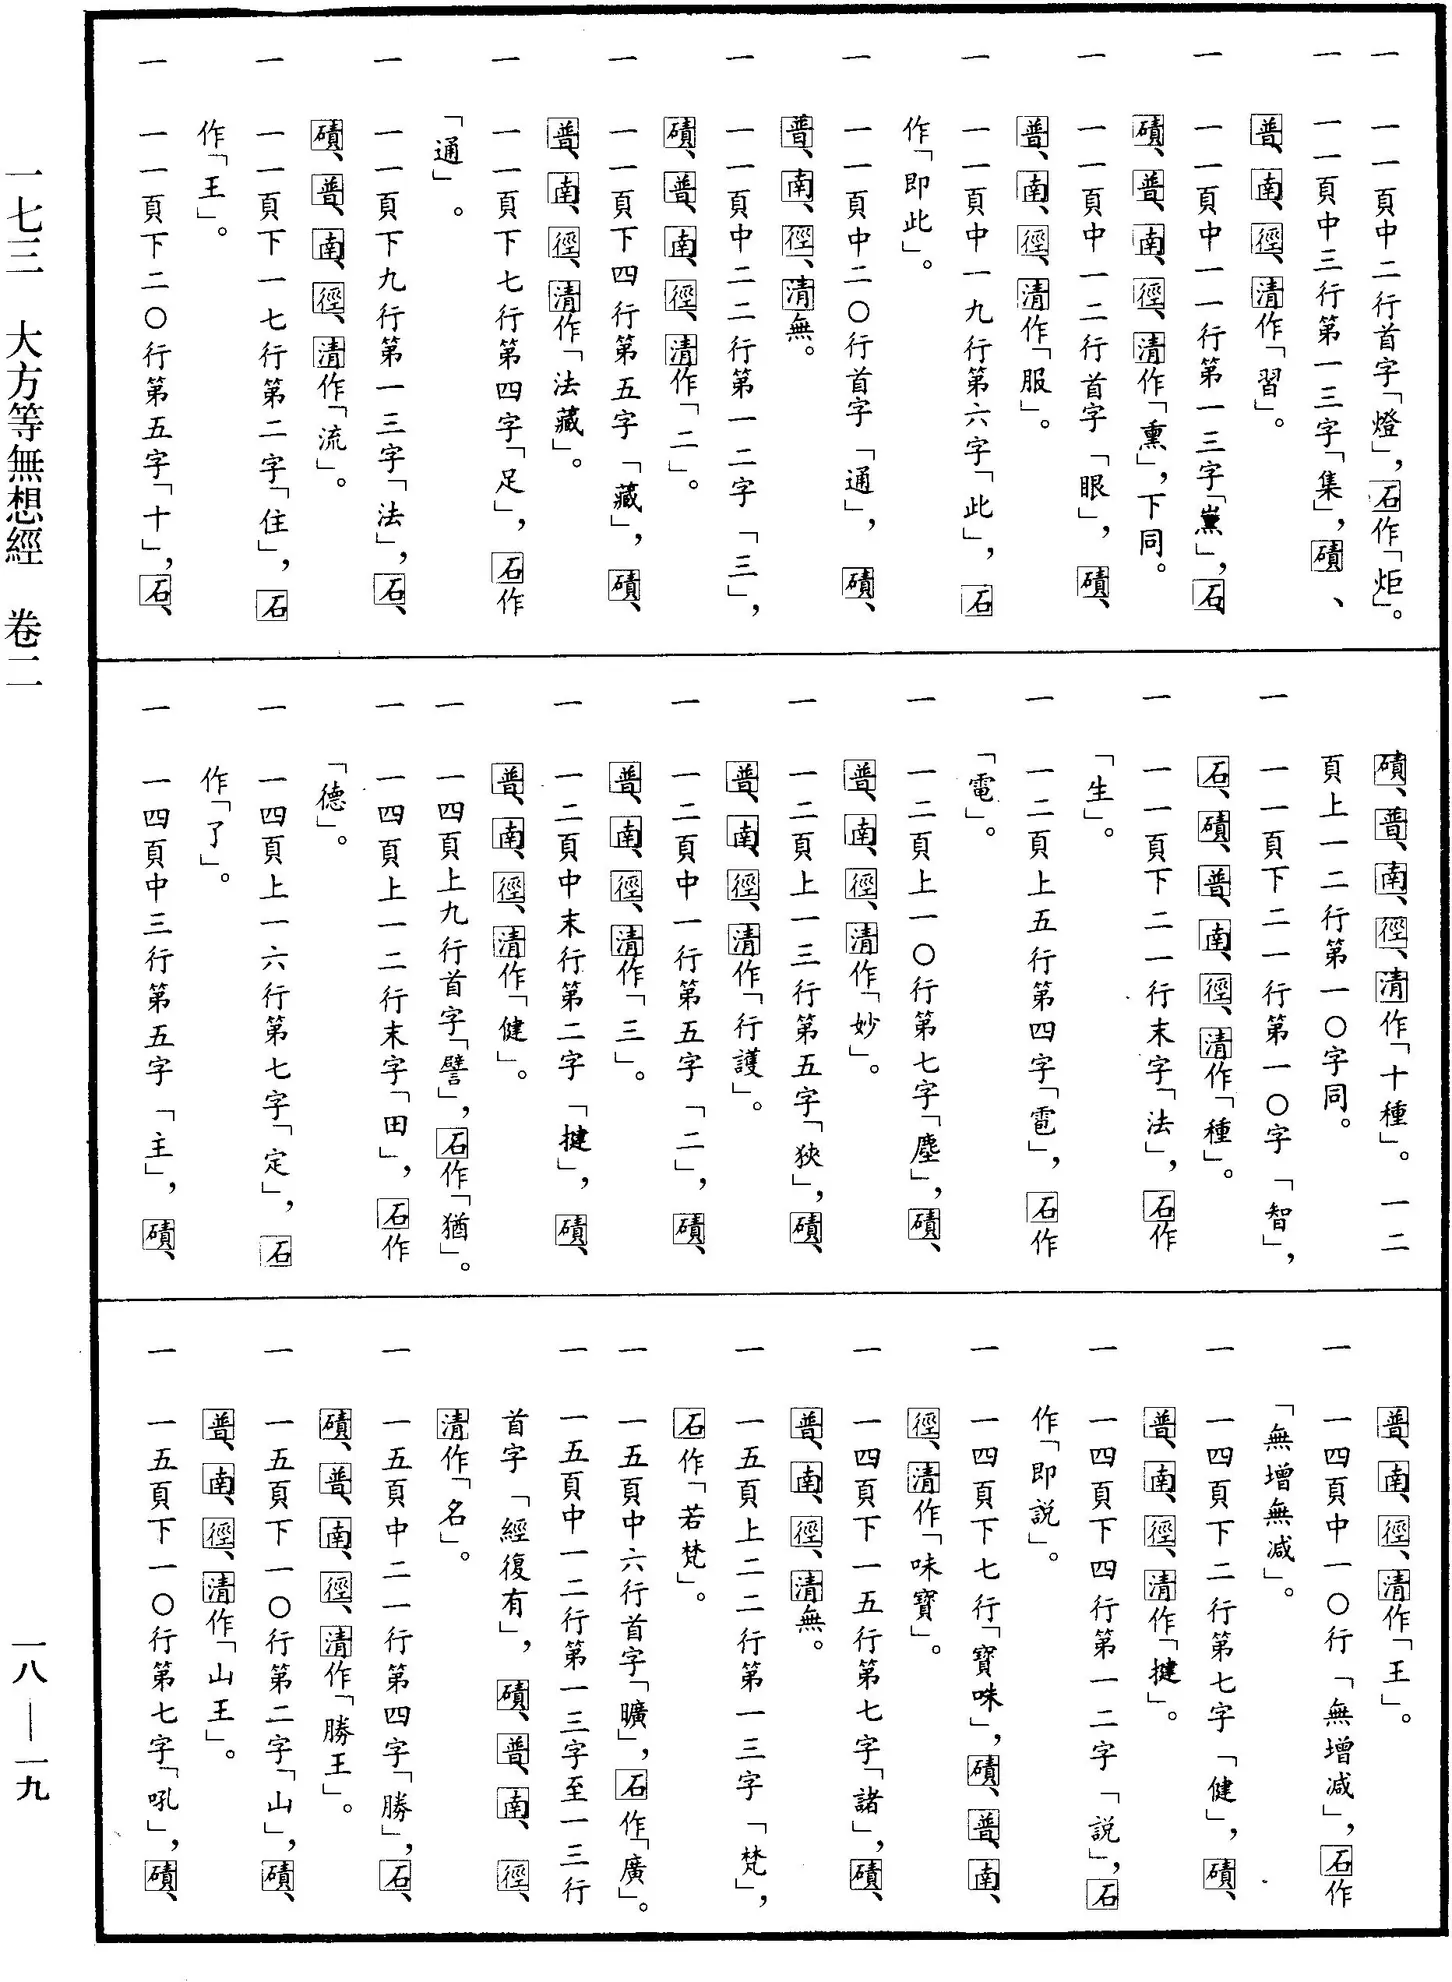 一　一一頁中二行首字「燈」，石作「炬」。
一　一一頁中三行第一三字「集」，磧、
普、南、徑、清作「習」。
一　一一頁中一一行第一三字「黨」，石、
磧、普、南、徑、清作「熏」，下同。
一　一一頁中一二行首字「眼」，磧、
普、南、徑、清作「服」。
一　一一頁中一九行第六字「此」，石
作「即此」。
一　一一頁中二〇行首字「通」，磧、
普、南、徑、清無。
一　一一頁中二二行第一二字「三」，
磧、普、南、徑、清作「二」。
一　一一頁下四行第五字「藏」，磧、
普、南、徑、清作「法藏」。
一　一一頁下七行第四字「足」，石作
「通」。
一　一一頁下九行第一三字「法」，石、
磧、普、南、徑、清作「流」。
一　一一頁下一七行第二字「住」，石
作「王」。
一　一一頁下二〇行第五字「十」，石、
磧、普、南、徑、清作「十種」。一二
頁上一二行第一〇字同。
一　一一頁下二一行第一〇字「智」，
石、磧、普、南、徑、清作「種」。
一　一一頁下二一行末字「法」，石作
「生」。
一　一二頁上五行第四字「雹」，石作
「電」。
一　一二頁上一〇行第七字「塵」，磧、
普、南、徑、清作「妙」。
一　一二頁上一三行第五字「狹」，磧、
普、南、徑、清作「行護」。
一　一二頁中一行第五字「二」，磧、
普、南、徑、清作「三」。
一　一二頁中末行第二字「揵」，磧、
普、南、徑、清作「健」。
一　一四頁上九行首字「譬」，石作「猶」。
一　一四頁上一二行末字「田」，石作
「德」。
一　一四頁上一六行第七字「定」，石
作「了」。
一　一四頁中三行第五字「主」，磧、
普、南、徑、清作「王」。
一　一四頁中一〇行「無增減」，石作
「無增無減」。
一　一四頁下二行第七字「健」，磧、
普、南、徑、清作「揵」。
一　一四頁下四行第一二字「説」，石
作「即説」。
一　一四頁下七行「寶味」，磧、普、南、
徑、清作「味寶」。
一　一四頁下一五行第七字「諸」，磧、
普、南、徑、清無。
一　一五頁上二二行第一三字「梵」，
石作「若梵」。
一　一五頁中六行首字「曠」，石作「廣」。
一　一五頁中一二行第一三字至一三行
首字「經復有」，磧、普、南、徑、
清作「名」。
一　一五頁中二一行第四字「勝」，石、
磧、普、南、徑、清作「勝王」。
一　一五頁下一〇行第二字「山」，磧、
普、南、徑、清作「山王」。
一　一五頁下一〇行第七字「吼」，磧、
一七三　大方等無想經　卷二
一八—一九